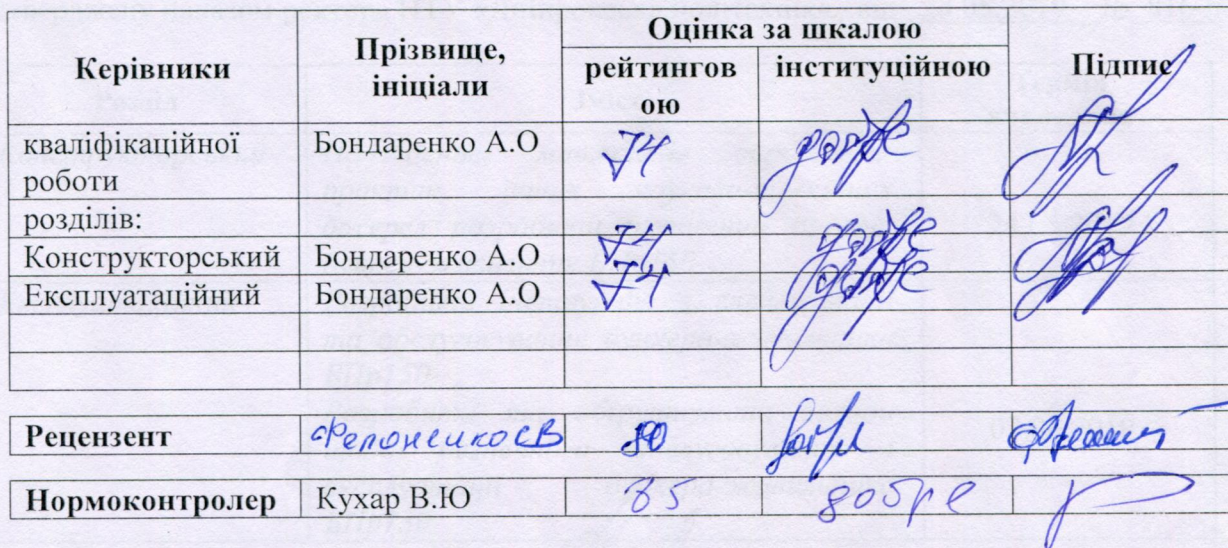 Керівники Прізвище, ініціали Оцінка за шкалою Підпис
рейтинговою інституційною
кваліфікаційної роботи Бондаренко А.О 74 добре
розділів:
Конструкторський Бондаренко А.О 74 добре
Експлуатаційний Бондаренко А.О 74 добре
Рецензент добре
Нормоконтролер Кухар В.Ю 85 добре